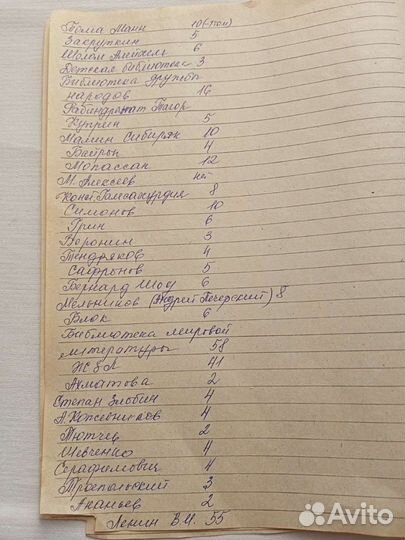 Тома Манн 10 (-1той)
Закруткин 5
Шолом Алейхем 6
Детская библиотека 3
Библиотека дружбы
народов 16
Рабиндранат Тагор
Куприн 5
Мамин Сибиряк 10
Байрон 4
Мопассан 12
М. Алексеев нет
Конст. Гамсахурдия 8
Симонов 10
Грин 6
Воронин 3
Тендряков 4
Сафронов 5
Бернард Шоу 6
Мельников (Андрий Печерский) 8
Блок 6
Библиотека мировой
литературы 58
ЖЗЛ 41
Ахматова 2
Степан Злобин 4
А. Кожевников 4
Тютчев 2
Шевченко 4
Серафимович 4
Троепольский 3
Ананьев 2
Ленин В.И. 55
Avito